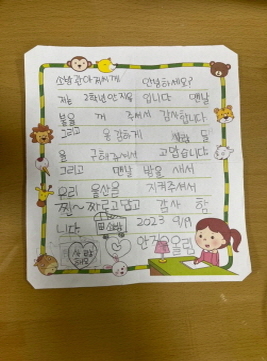 소방관아저씨께 안녕하세요?
저는 2학년 안지유 입니다 맨날
불을 꺼 주셔서 감사합니다
그리고 용감하게 사람 들
을 구해주셔서 고맙습니다
그리고 맨날 밤을 새서
우리 울산을 지켜주셔서
찐~ 짜로고맙고 감사 함
니다 소방 2023 9/19
사랑
해요 올림